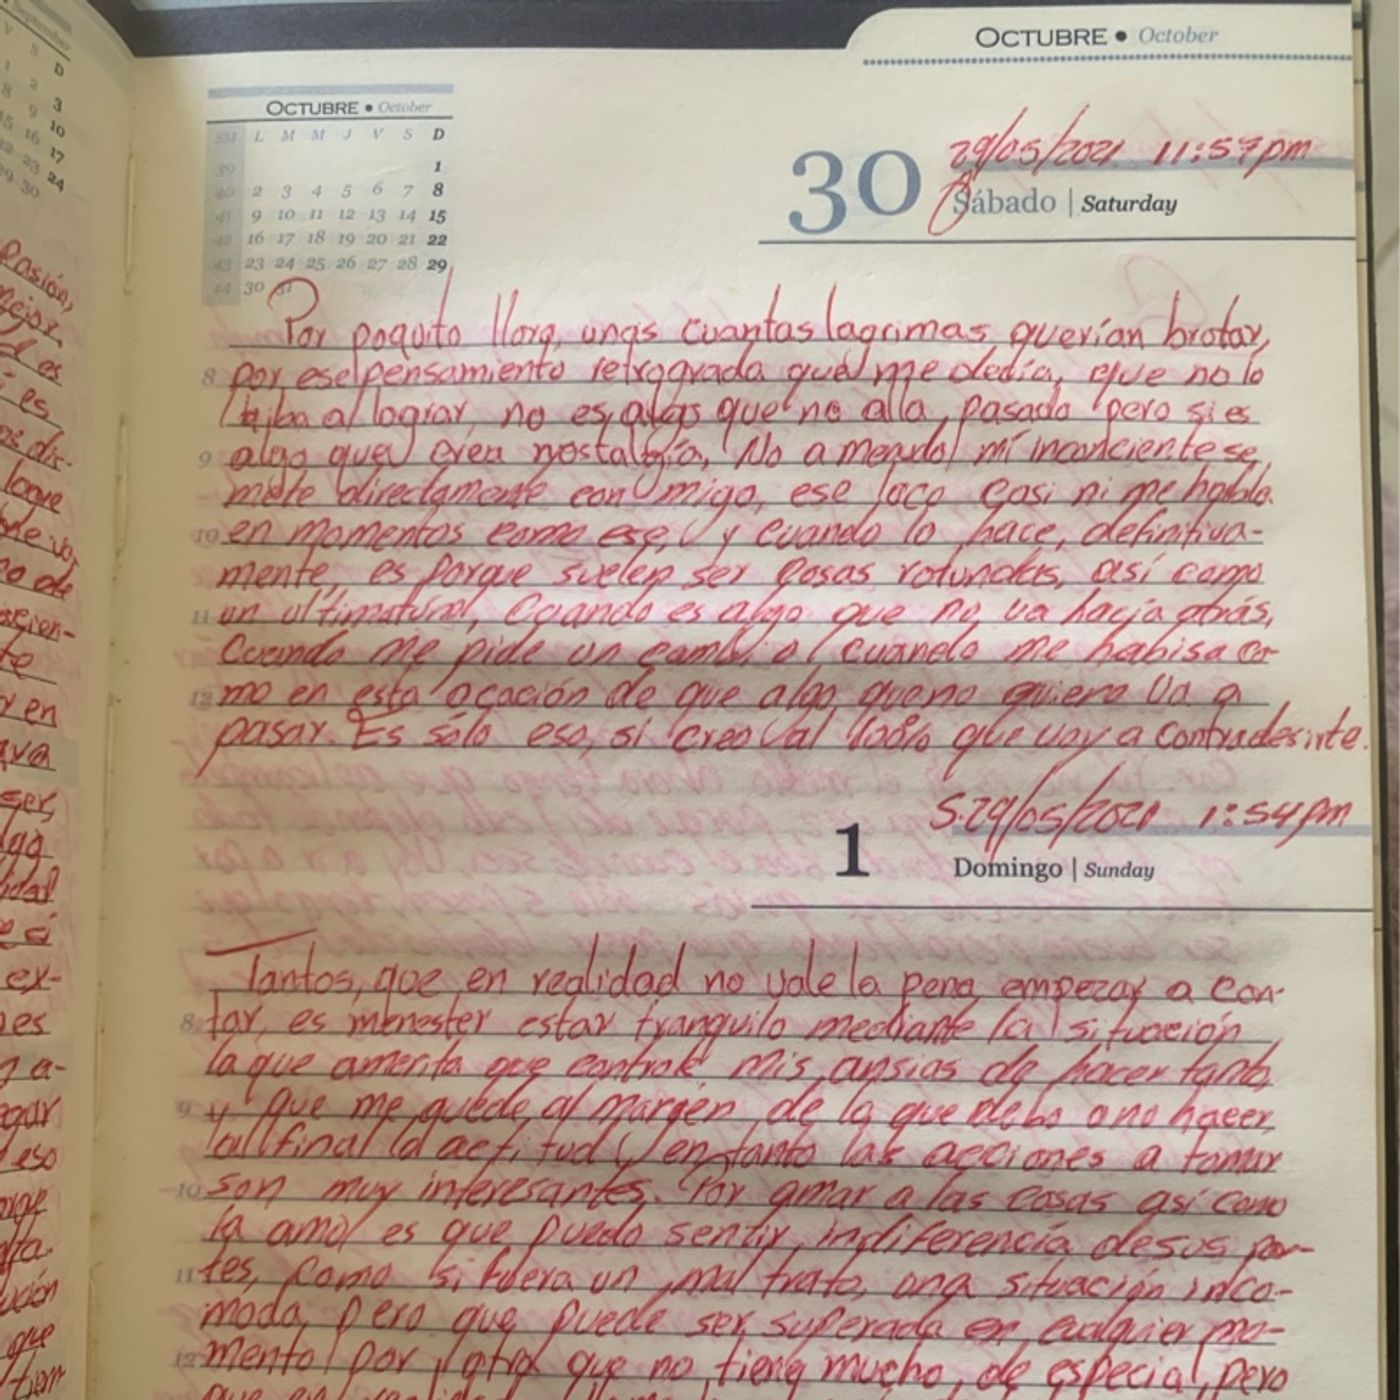 September
V S D
1 2 3
8 9 10
15 16 17
22 23 24
29 30
OCTUBRE • October
OCTUBRE • October
SM. L M M J V S D
39 1
40 2 3 4 5 6 7 8
41 9 10 11 12 13 14 15
42 16 17 18 19 20 21 22
43 23 24 25 26 27 28 29
44 30 31
29/05/2021 11:57pm
30
Sábado | Saturday
Por poquito lloro, unas cuantas lagrimas querían brotar,
8 por ese pensamiento retrograda que me decía, que no lo
iba a lograr, no es algo que no alla pasado pero si es
9 algo que crea nostalgía, No a menudo mi inconciente se
mete directamente con migo, ese loco casi ni me habla
10 en momentos como ese, y cuando lo hace, definitiva-
mente, es porque suelen ser cosas rotundas, así como
11 un ultimatúm, Cuando es algo que no va hacia atrás,
Cuando me pide un cambio, cuando me habisa co-
12 mo en esta ocación de que algo que no quiero va a
pasar. Es sólo eso, si creo al que voy a contradesirte.
S. 29/05/2021 1:54pm
1
Domingo | Sunday
Tantos, que en realidad no vale la pena empezar a con-
8 tar, es menester estar tranquilo mediante la situación
la que amerita que controle mis ansias de hacer tanto,
9 y que me quede al margen de lo que debo o no hacer,
al final la actitud y en tanto las acciones a tomar
10 son muy interesantes. Por amar a las cosas así como
la amo es que puedo sentir, indiferencia de sus par-
11 tes, como si fuera un mal trato, una situación inco-
moda, pero que puede ser superada en cualquier mo-
12 mento por otra que no tiene mucho de especial, pero
que en realidad